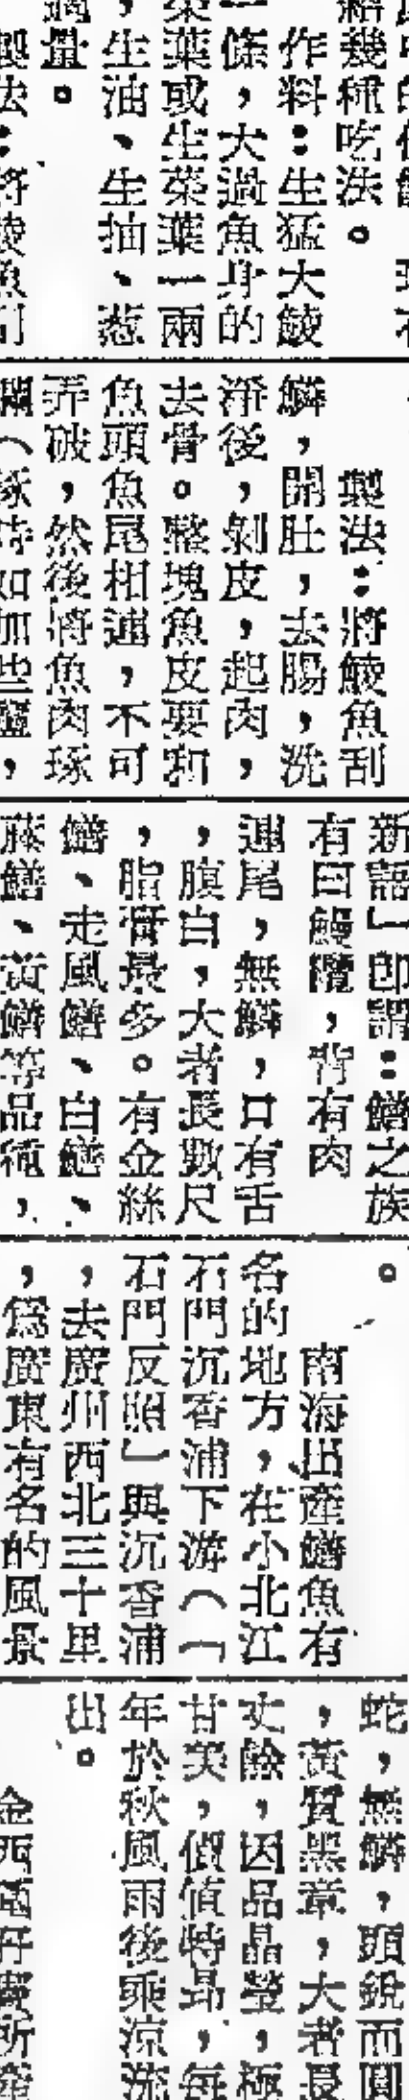 紹幾種吃法。
作料：生猛大鯪
一條，大過魚身的
菜葉或生菜葉一兩
，生油、生抽、葱
適量。
製法：將鯪魚刮
製法：將鯪魚刮
鱗，開肚，去腸，洗
淨後，剝皮，起肉，
去骨。整塊魚皮要和
魚頭魚尾相連，不可
弄破，然後將魚肉琢
爛（琢時如加些鹽，
新語」即謂：鱔之族
有曰鰻𩼰，背有肉
連尾，無鱗，口有舌
，腹白，大者長數尺
，脂膏最多。有金絲
鱔、走風鱔、白鱔、
藤鱔、黃鱔等品種，
。
南海出產鱔魚有
名的地方，在小北江
石門沉香浦下游（「
石門反照」與沉香浦
，去廣州西北三十里
，爲廣東有名的風景
蛇，無鱗，頭銳而圓
，黃質黑章，大者長
丈餘，因品晶瑩，極
甘美，價值特昂，每
年於秋風雨後乘涼流
出。